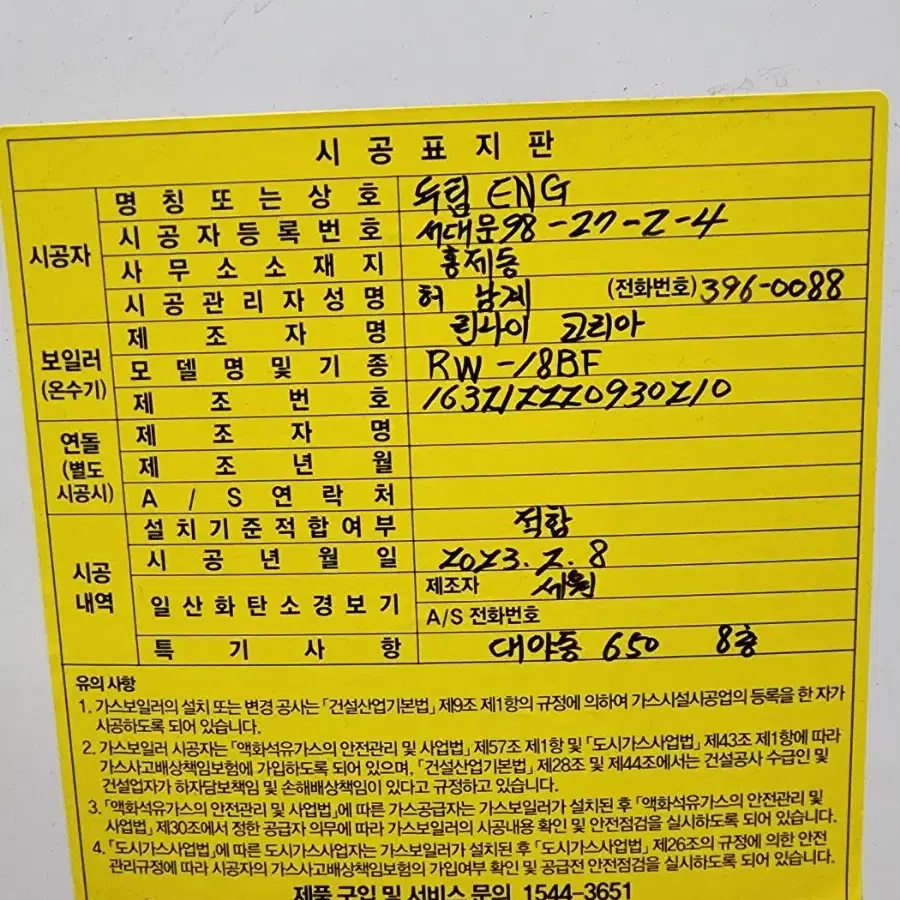 시공표지판
시공자
명칭또는상호 두텁 ENG
시공자등록번호 서대문98-27-2-4
사무소소재지 홍제동
시공관리자성명 허남계 (전화번호) 396-0088
보일러
(온수기)
제조자명 린나이 코리아
모델명및기종 RW-18BF
제조번호 163212220930210
연돌
(별도
시공시)
제조자명
제조년월
A/S연락처
시공
내역
설치기준적합여부 적합
시공년월일 2023.2.8
일산화탄소경보기 제조자 세원
A/S 전화번호
특기사항 대야동 650 8층
유의 사항
1. 가스보일러의 설치 또는 변경 공사는 「건설산업기본법」 제9조 제1항의 규정에 의하여 가스시설시공업의 등록을 한 자가
시공하도록 되어 있습니다.
2. 가스보일러 시공자는 「액화석유가스의 안전관리 및 사업법」 제57조 제1항 및 「도시가스사업법」 제43조 제1항에 따라
가스사고배상책임보험에 가입하도록 되어 있으며, 「건설산업기본법」 제28조 및 제44조에서는 건설공사 수급인 및
건설업자가 하자담보책임 및 손해배상책임이 있다고 규정하고 있습니다.
3. 「액화석유가스의 안전관리 및 사업법」에 따른 가스공급자는 가스보일러가 설치된 후 「액화석유가스의 안전관리 및
사업법」 제30조에서 정한 공급자 의무에 따라 가스보일러의 시공내용 확인 및 안전점검을 실시하도록 되어 있습니다.
4. 「도시가스사업법」에 따른 도시가스사업자는 가스보일러가 설치된 후 「도시가스사업법」 제26조의 규정에 의한 안전
관리규정에 따라 시공자의 가스사고배상책임보험의 가입여부 확인 및 공급전 안전점검을 실시하도록 되어 있습니다.
제품 구입 및 서비스 문의 1544-3651